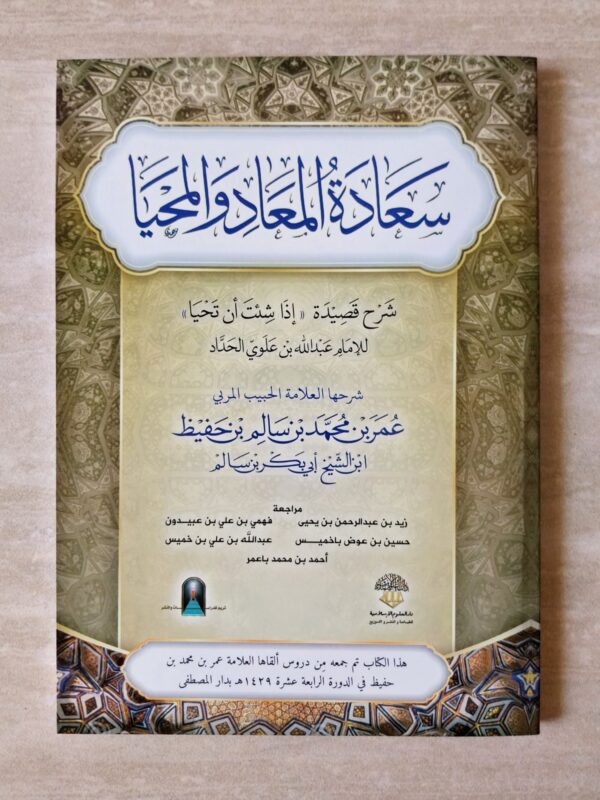 سَعَادَةُ المَعَادِ وَالمَحْيَا
شَرْح قَصِيْدَة «إِذَا شِئتَ أن تَحْيَا»
للإمَام عَبْدالله بْن عَلَوي الحَدَّاد
شرحها العلامة الحبيب المربي
عُمَر بْن مُحَمَّد بْن سَالِم بْن حَفِيْظ
ابْن الشَّيْخ أبي بَكْر بْن سَالِم
مراجعة
زيد بن عبدالرحمن بن يحيى فهمي بن علي بن عبيدون
حسين بن عوض باخميس عبدالله بن علي بن خميس
أحمد بن محمد باعمر
دار العلوم الإسلامية
للطباعة والنشر والتوزيع
تريم للدراسات والنشر
هذا الكتاب تم جمعه مِن دروس ألقاها العلامة عمر بن محمد بن
حفيظ في الدورة الرابعة عشرة ١٤٢٩هـ بدار المصطفى